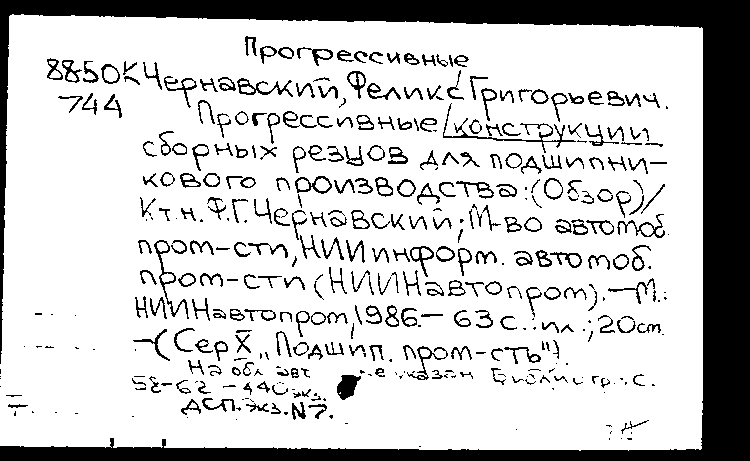 Прогрессивные
88-50К Чернавский, Феликс Григорьевич.
744 Прогрессивные конструкции
сборных резцов для подшипни-
кового производства: (Обзор)/
К.т.н. Ф.Г. Чернавский; М-во автомоб.
пром-сти, НИИ информ. автомоб.
пром-сти (НИИНавтопром). — М.:
НИИНавтопром, 1986. — 63 с.: ил.; 20 см.
— (Сер X „Подшип. пром-сть").
На обл. авт. не указан Библиогр.: с.
58-62 - 440 экз.
ДСП. Экз. N 7.